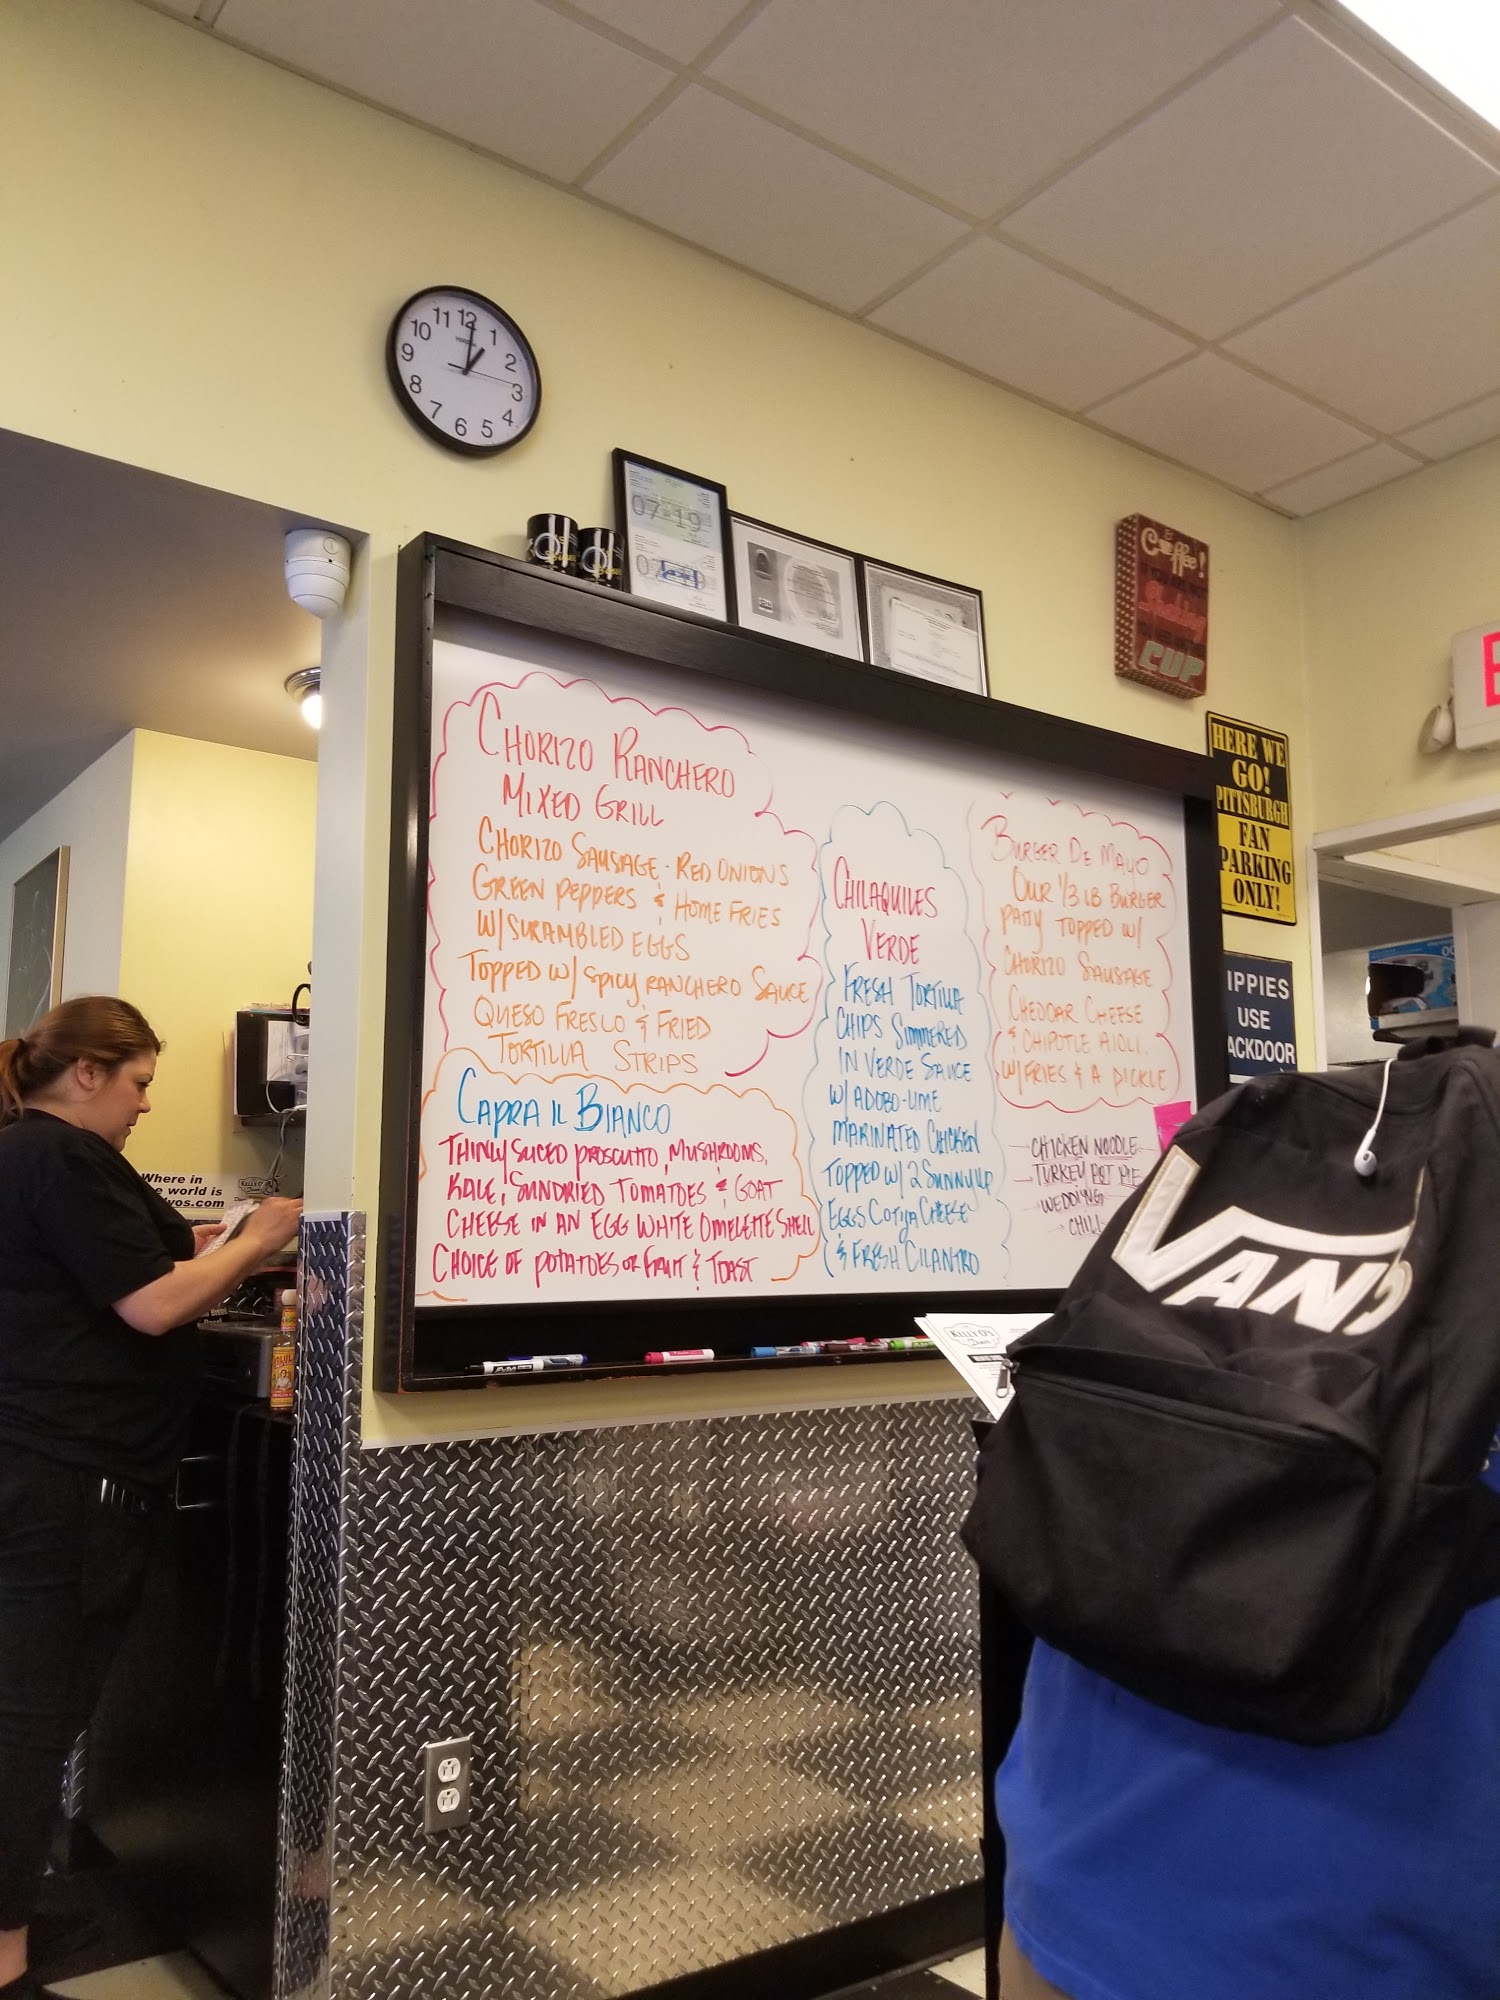 11 12 1
10 2
9 3
8 4
7 6 5
07 19
07 19
Coffee!
CUP
HERE WE
GO!
PITTSBURGH
FAN
PARKING
ONLY!
IPPIES
USE
ACKDOOR
CHORIZO RANCHERO
MIXED GRILL
CHORIZO SAUSAGE · RED ONIONS
GREEN PEPPERS & HOME FRIES
W/SCRAMBLED EGGS
TOPPED W/ SPICY RANCHERO SAUCE
QUESO FRESCO & FRIED
TORTILLA STRIPS
CAPRA IL BIANCO
THINLY SLICED PROSCUTTO, MUSHROOMS,
KALE, SUNDRIED TOMATOES & GOAT
CHEESE IN AN EGG WHITE OMELETTE SHELL
CHOICE OF POTATOES OR FRUIT & TOAST
CHILAQUILES
VERDE
FRESH TORTILLA
CHIPS SIMMERED
IN VERDE SAUCE
W/ADOBO-LIME
MARINATED CHICKEN
TOPPED W/ 2 SUNNY UP
EGGS COTIJA CHEESE
& FRESH CILANTRO
BURGER DE MAYO
OUR 1/3 LB BURGER
PATTY TOPPED W/
CHORIZO SAUSAGE
CHEDDAR CHEESE
& CHIPOTLE AIOLI.
W/FRIES & A PICKLE
CHICKEN NOODLE
TURKEY POT PIE
WEDDING
CHILI
Where in
e world is
yos.com
KELLY O'S
VANS